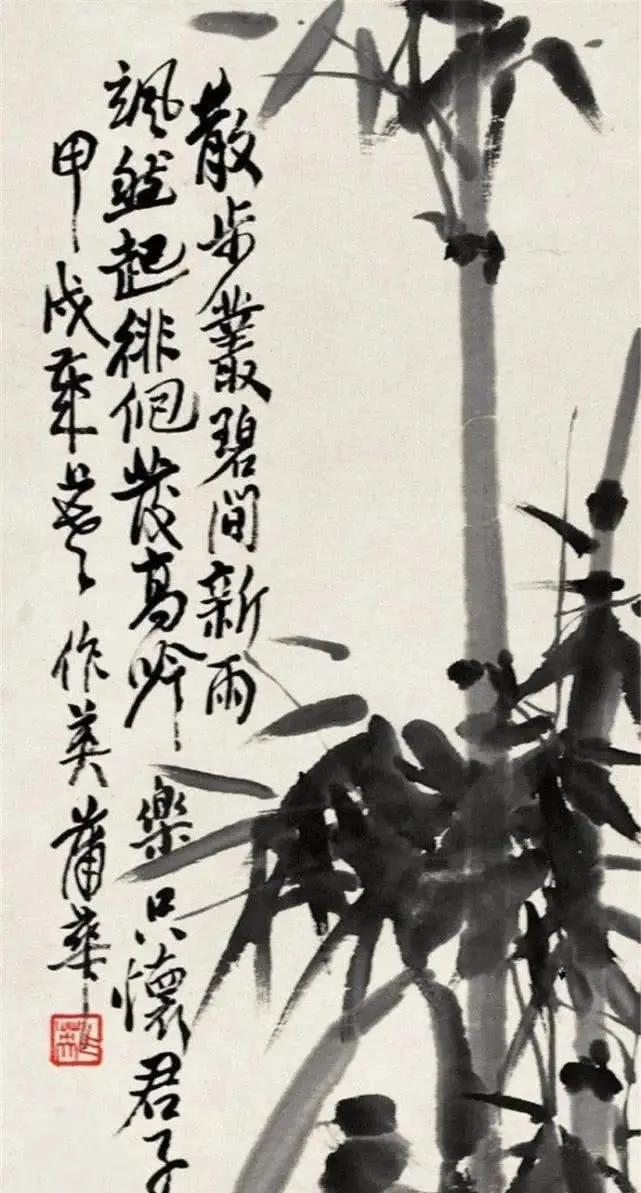 散步叢碧間新雨
颯然起徘徊發高吟樂只懷君子
甲戌作英蒲華